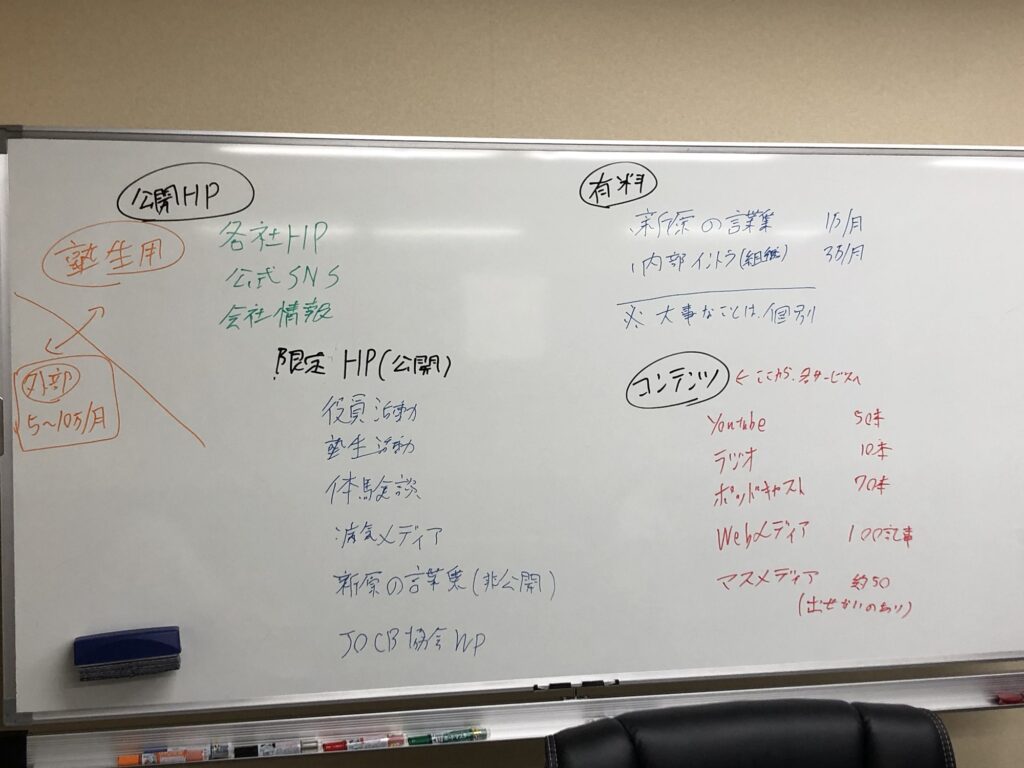 公開HP
塾生用
各社HP
公式SNS
会社情報
外部
5〜10万/月
限定 HP(公開)
役員活動
塾生活動
体験談
病気メディア
新原の言葉集(非公開)
JOCB協会HP
有料
新原の言葉集 1万/月
内部イントラ(組織) 3万/月
※ 大事なことは、個別
コンテンツ ← ここから、各サービスへ
Youtube 50本
ラジオ 10本
ポッドキャスト 70本
Webメディア 100記事
マスメディア 約50
(出せないのあり)